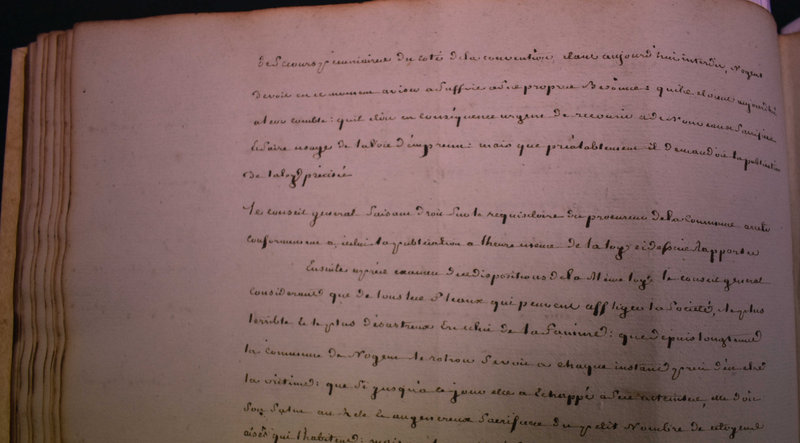 de Secours pecuniaires du coté de la convention, etant aujourd'hui interdit, Nogent
devoit en ce moment aviser a Suffire a Ses propres Besoins qui etoient aujourd'hui
a leur comble: qu'il étoit en conséquence urgent de recourir a de Nouveaux Sacrifices
et faire usage de la voie d'emprunt: mais que préalablement il demandoit la publication
de la loy précisée
Le conseil general faisant droit Sur le requisitoire du procureur de la commune arrete
conformement a celui la publication a l'heure meme de la loy ci dessus Rapportée
Ensuite après examen des dispositions de la Même loy, le conseil general
considerant que de tous les fleaux qui peuvent affliger la Société, le plus
terrible et le plus désastreux Est celui de la famine: que depuis longtems
la commune de Nogent le rotrou Se voit a chaque instant près d'en etre
la victime: que Si jusqu'a ce jour elle a Echappé a Ses atteintes, elle doit
Son Salut au zele et aux genereux Sacrifices du petit Nombre de citoyens
aisés qui l'habitent: